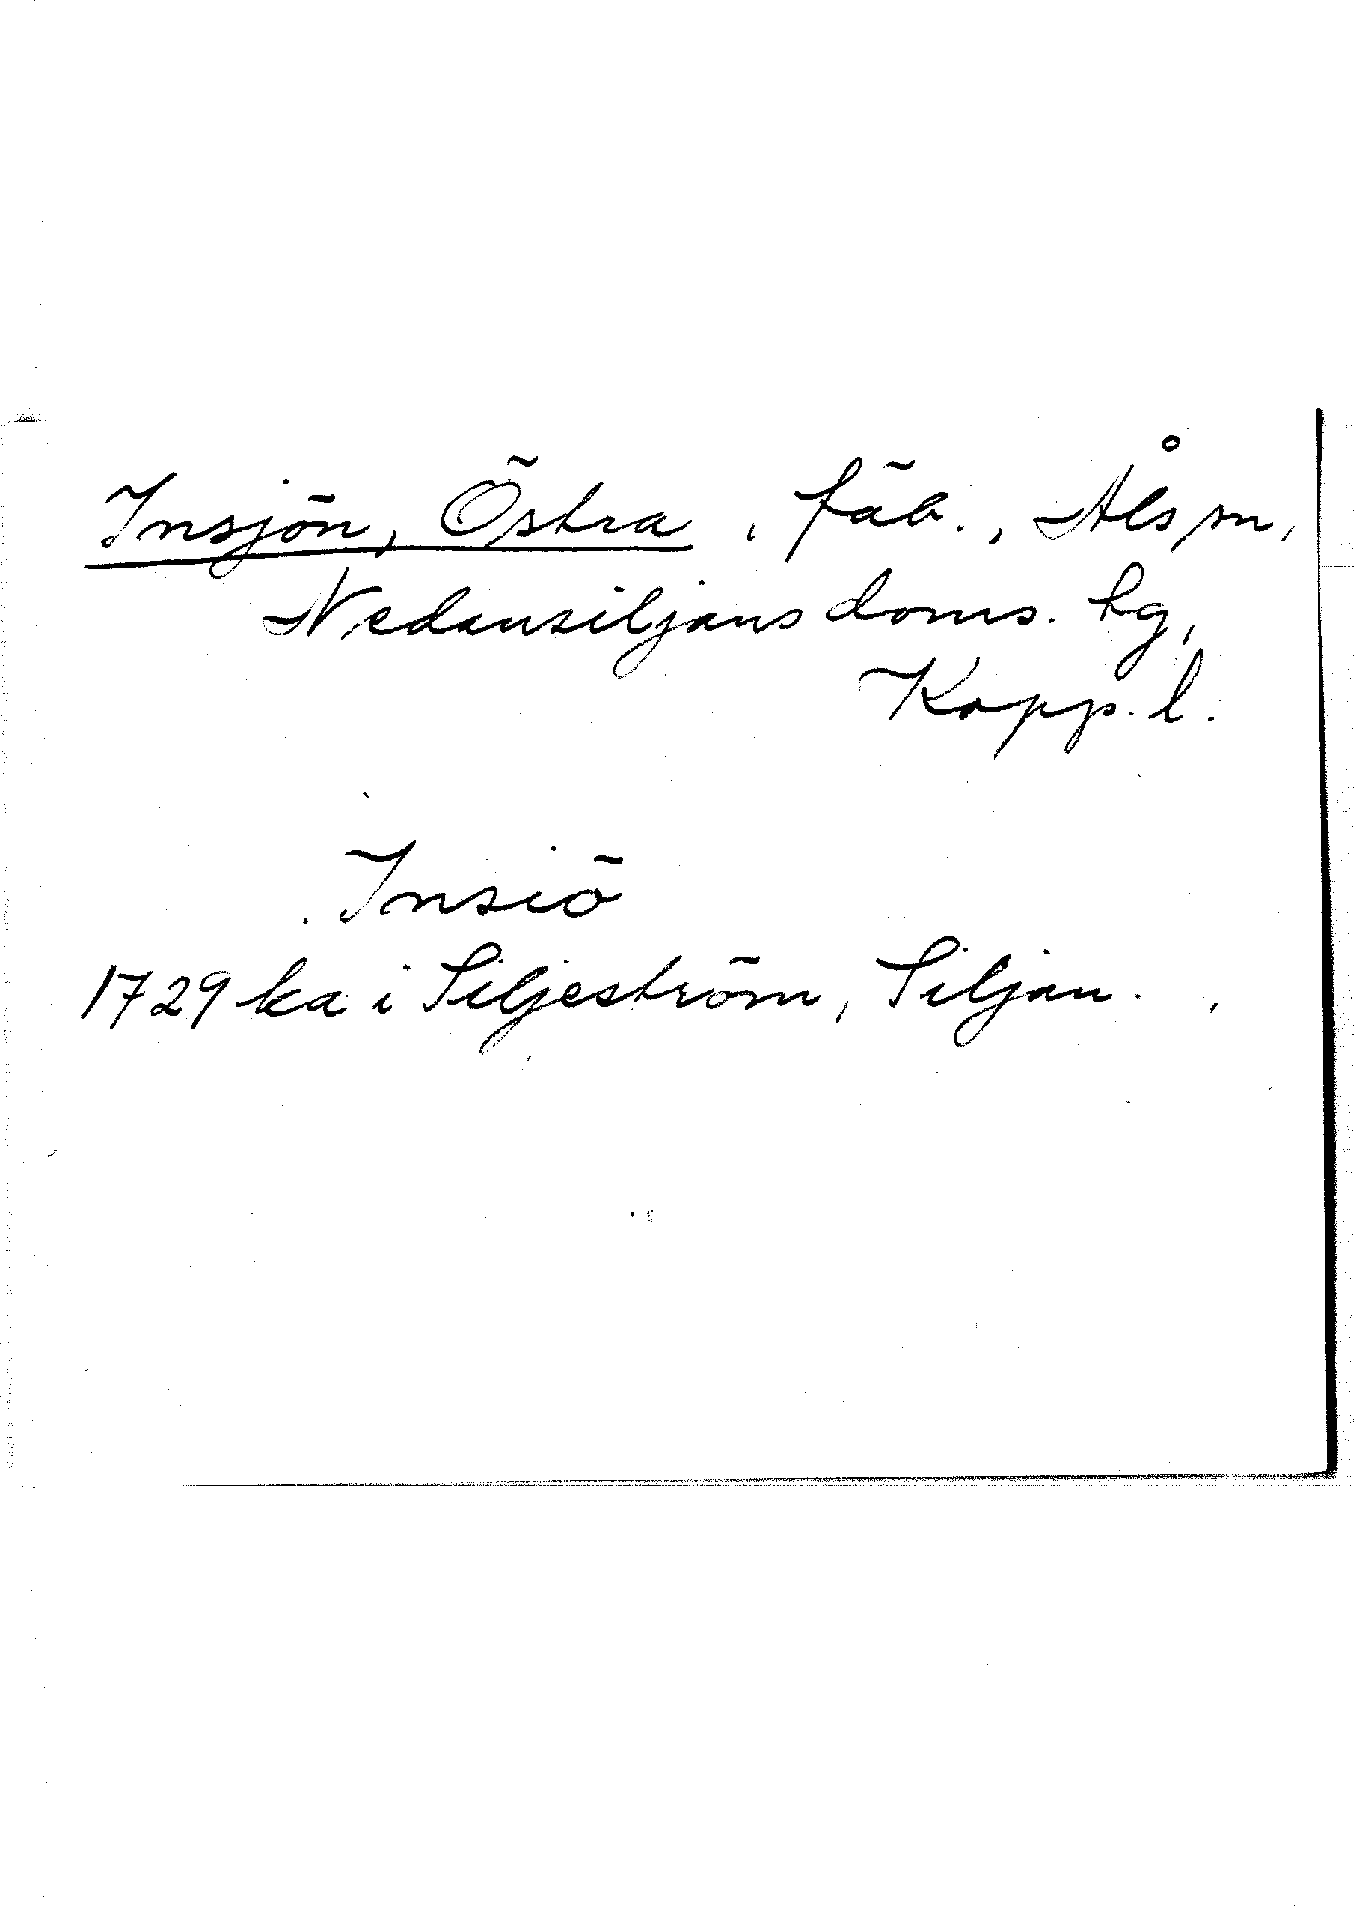 Insjön, Östra, fäb., Åls sn,
Nedansiljans doms. hg,
Kopp. l.
Insiö
1729 ka i Siljeström, Siljan.